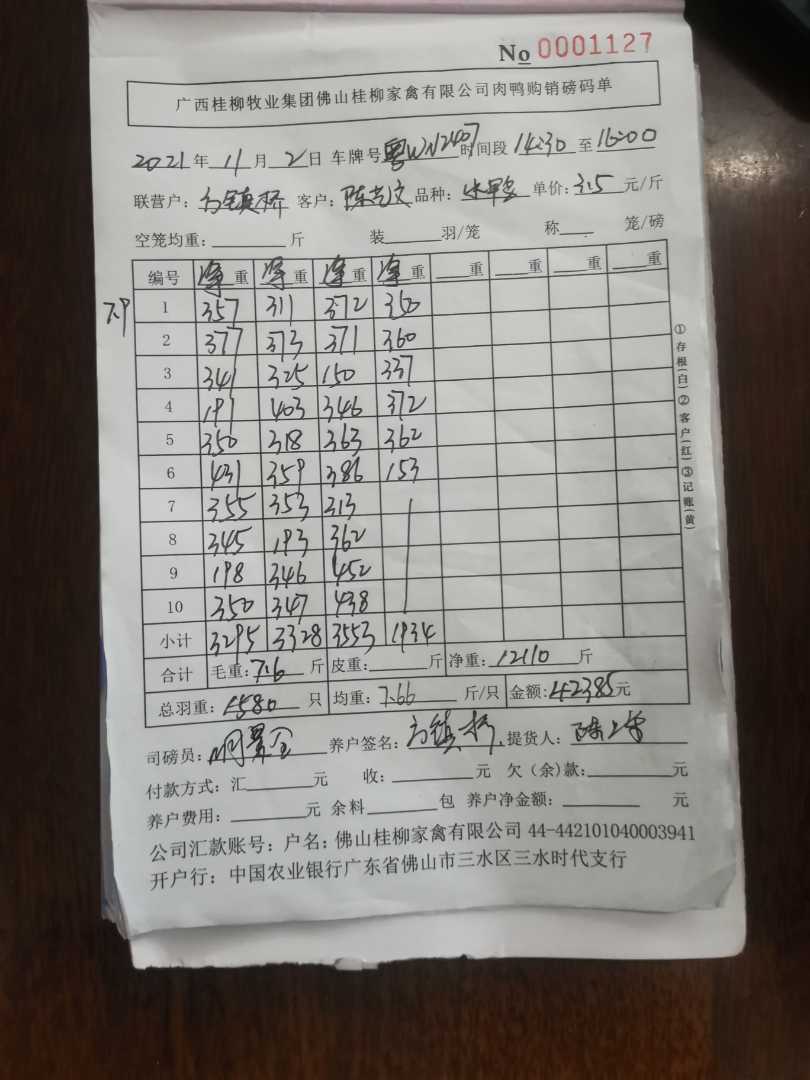 No 0001127
广西桂柳牧业集团佛山桂柳家禽有限公司肉鸭购销磅码单
2021年11月2日 车牌号粤WN2407时间段14:30至16:00
联营户：镇桥 客户：陈 品种： 单价：3.5元/斤
空笼均重：斤 装羽/笼 称笼/磅
编号 净重 净重 净重 净重 重 重 重 重
7.9
1 357 311 372 350
2 377 373 371 360
3 341 325 150 337
4 191 403 346 372
5 350 318 363 362
6 431 359 386 153
7 355 353 313
8 345 193 362
9 198 346 452
10 350 347 438
小计 3295 3328 3553 1934
合计 毛重：7.6斤 皮重：斤 净重：12110斤
总羽重：1580只 均重：7.66斤/只 金额：42385元
司磅员： 养户签名：镇桥 提货人：陈
付款方式：汇元 收：元 欠（余）款：元
养户费用：元 余料包 养户净金额：元
公司汇款账号：户名：佛山桂柳家禽有限公司 44-442101040003941
开户行：中国农业银行广东省佛山市三水区三水时代支行
①存根(白)②客户(红)③记账(黄)